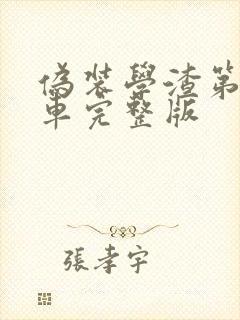 偽装學渣第
車完整版
張孝宇